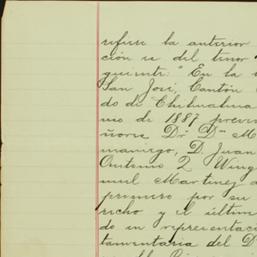 refiere la anterior
ción es del tenor
guiente: "En la
San José, Cantón
do de Chihuahua
mo de 1887 previa
ñores Dn. Dn. M
maniego, D. Juan
Antonio Q. Wing
muel Martinez
promiso por su
recho y el últim
do en representac
tamentaria del D